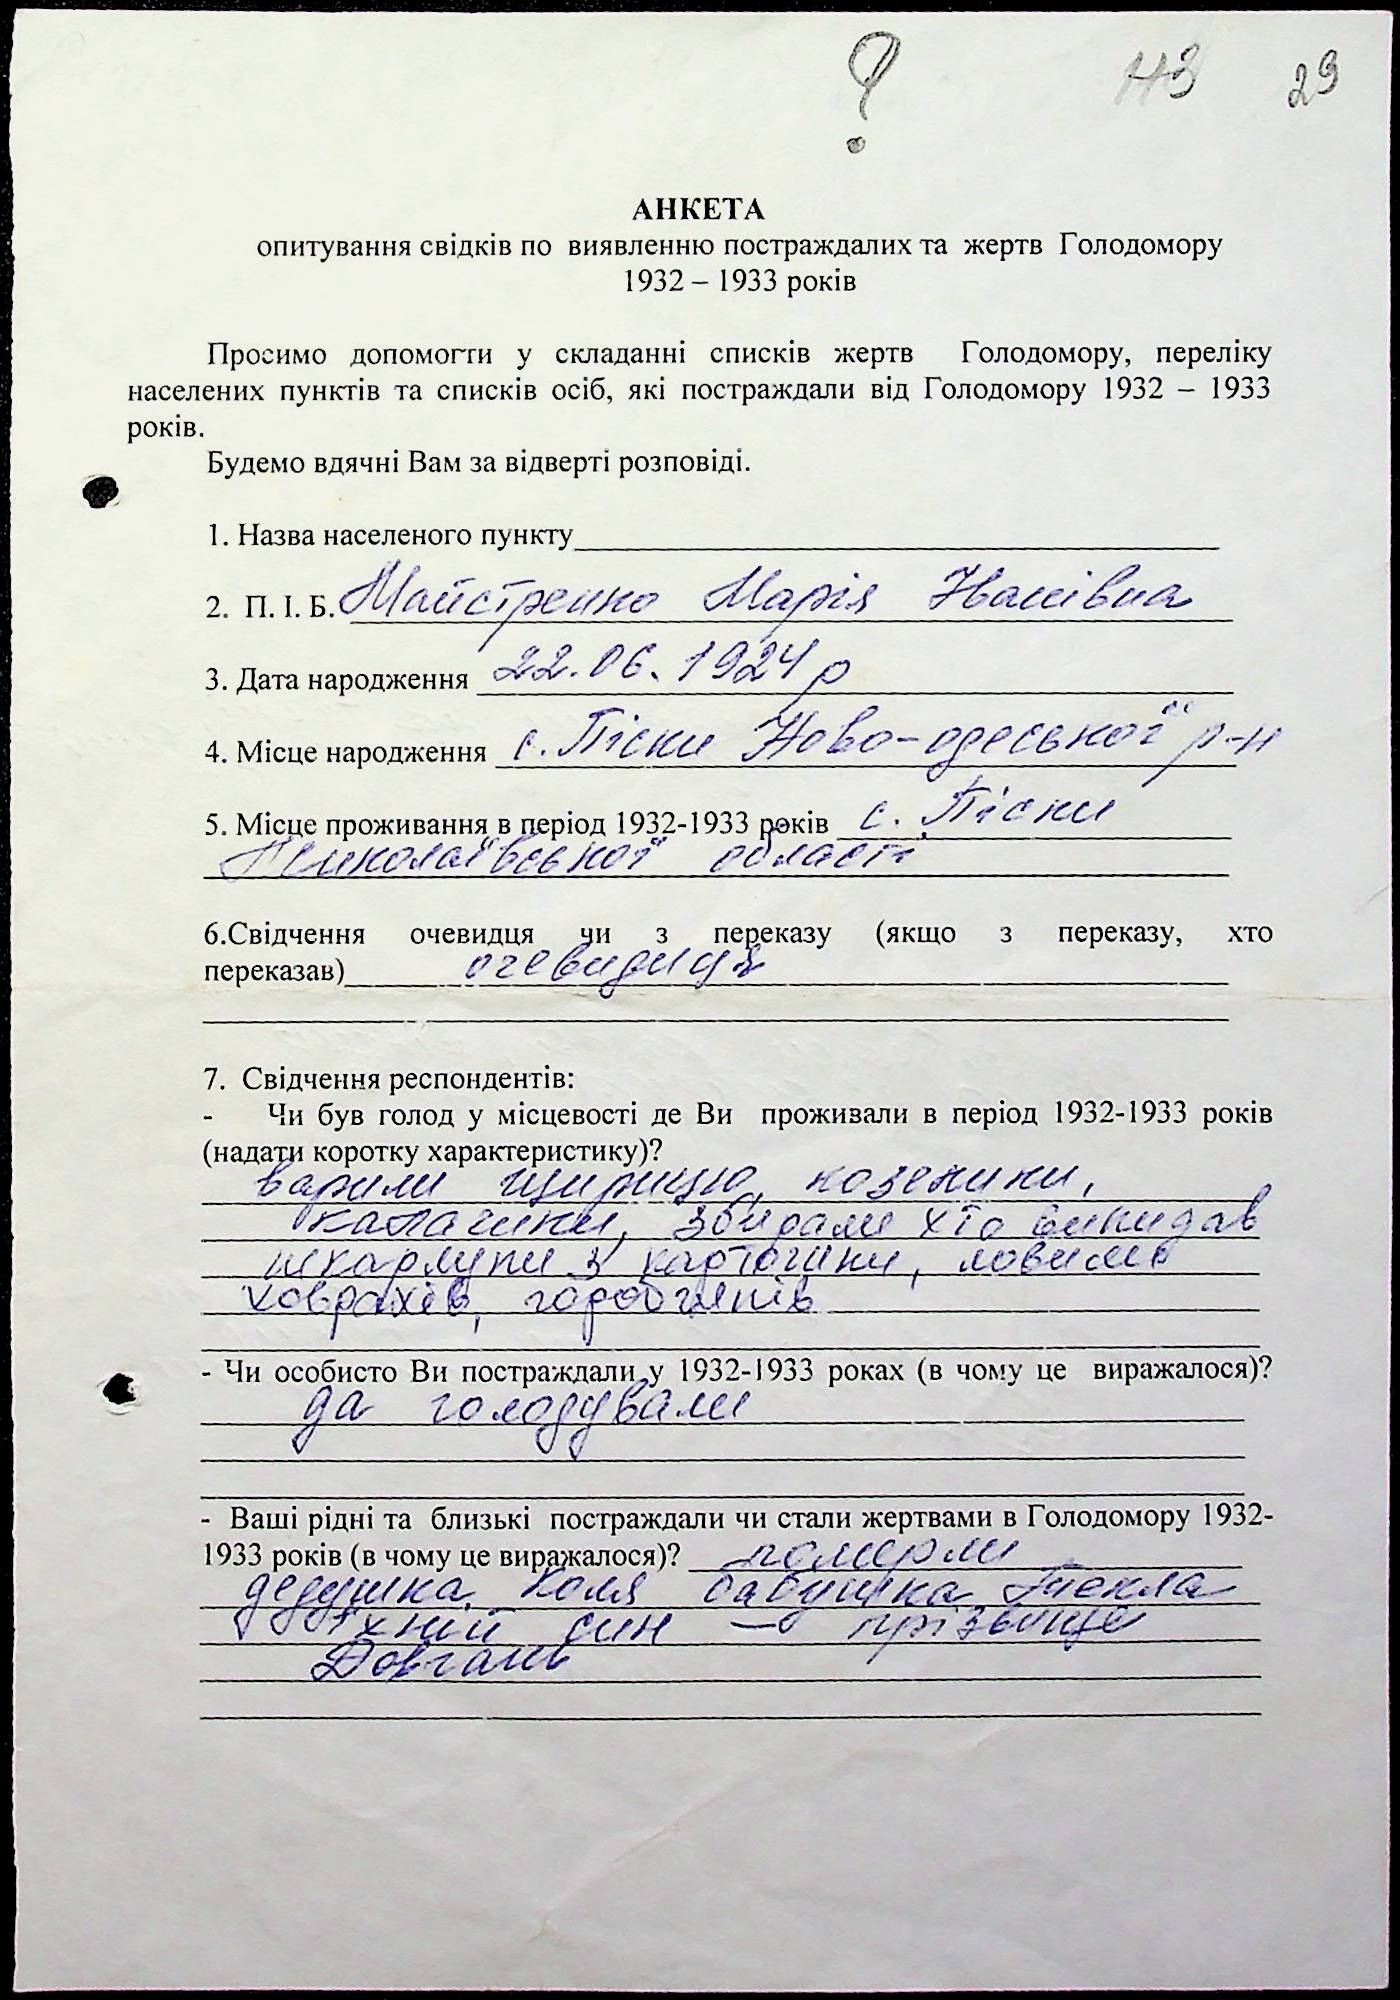 ? 113 29
АНКЕТА
опитування свідків по виявленню постраждалих та жертв Голодомору
1932 – 1933 років
Просимо допомогти у складанні списків жертв Голодомору, переліку
населених пунктів та списків осіб, які постраждали від Голодомору 1932 – 1933
років.
Будемо вдячні Вам за відверті розповіді.
1. Назва населеного пункту
2. П. І. Б. Майстренко Марія Іванівна
3. Дата народження 22.06.1924 р
4. Місце народження с. Піски Ново-одеської р-н
5. Місце проживання в період 1932-1933 років с. Піски
Миколаївської області
6.Свідчення очевидця чи з переказу (якщо з переказу, хто
переказав) очевидиця
7. Свідчення респондентів:
- Чи був голод у місцевості де Ви проживали в період 1932-1933 років
(надати коротку характеристику)?
варили щирицю, козелики,
калачики, збирали хто викидав
шкарлупи з картошки, ловили
ховрахів, горобчиків
- Чи особисто Ви постраждали у 1932-1933 роках (в чому це виражалося)?
да голодували
- Ваші рідні та близькі постраждали чи стали жертвами в Голодомору 1932-
1933 років (в чому це виражалося)? померли
дедушка Коля бабушка Текла
їхній син – прізвище
Довгань